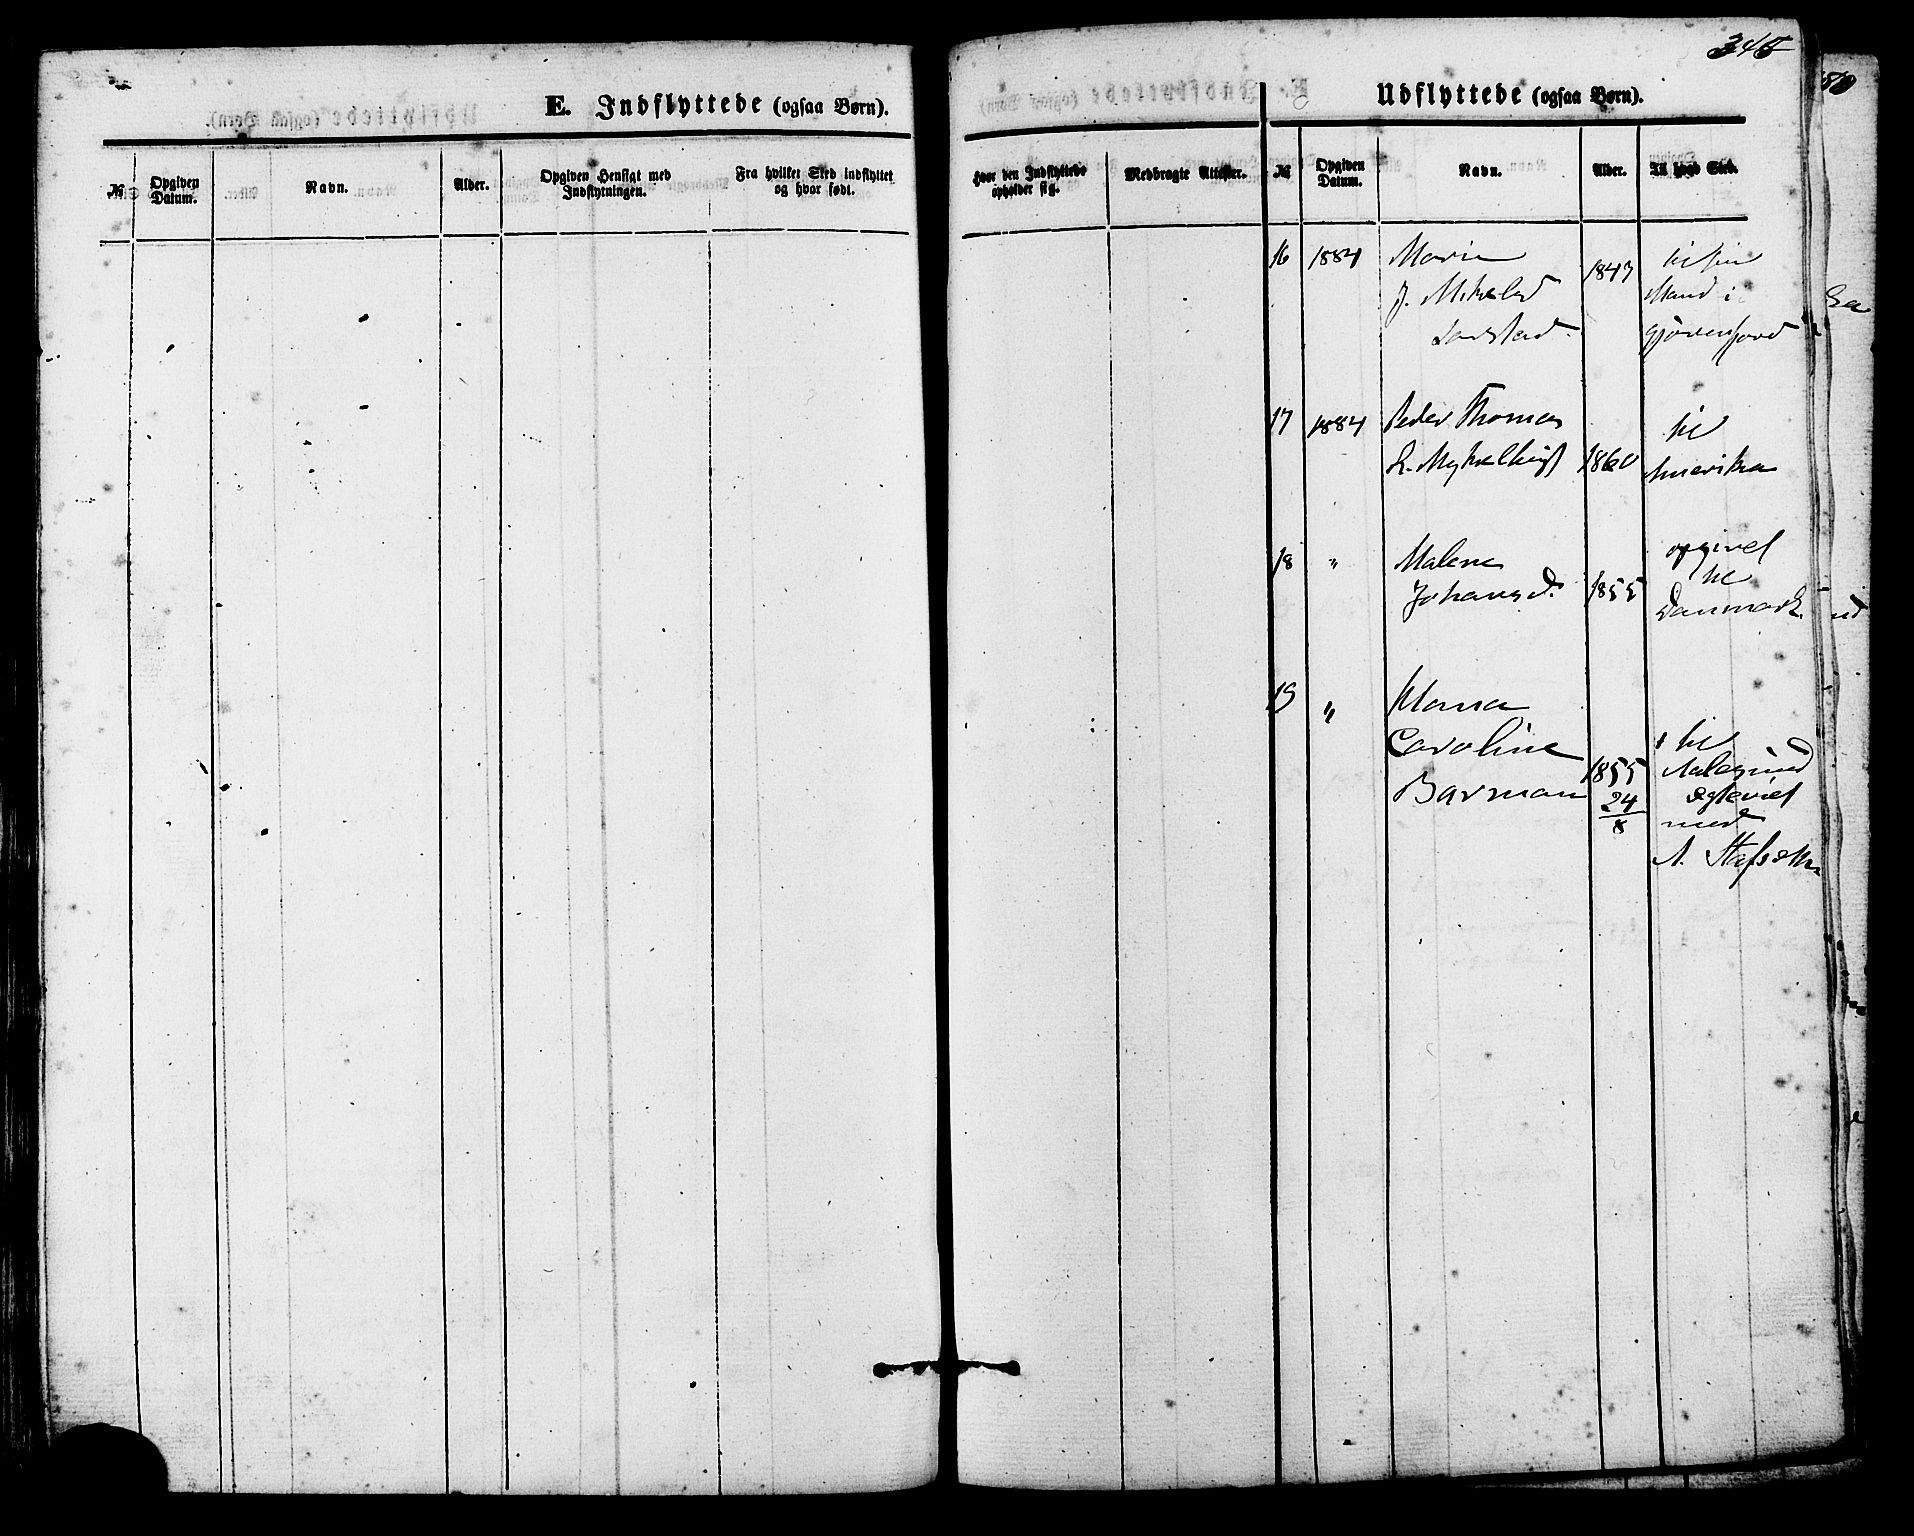 345
E. Indflyttede (ogsaa Børn).
Udflyttede (ogsaa Børn).
№
Opgiven Datum.
Navn.
Alder.
Opgiven Hensigt med Indflytningen.
Fra hvilket Sted indflyttet og hvor født.
Hvor den Indflyttede opholder sig.
Medbragte Attester.
№
Opgiven Datum.
Navn.
Alder.
Til hvad Sted.
16 1884 Marie 1847 til sin
J. Mikelsd Mand i
17 1884 Peder Thomas til
1860 Amerika
18 " Malene opgivet
Johansd. 1855 til
Danmark
19 "
Caroline til
Barman 1855 Aalesund
24 ægteviet
8 med
A.